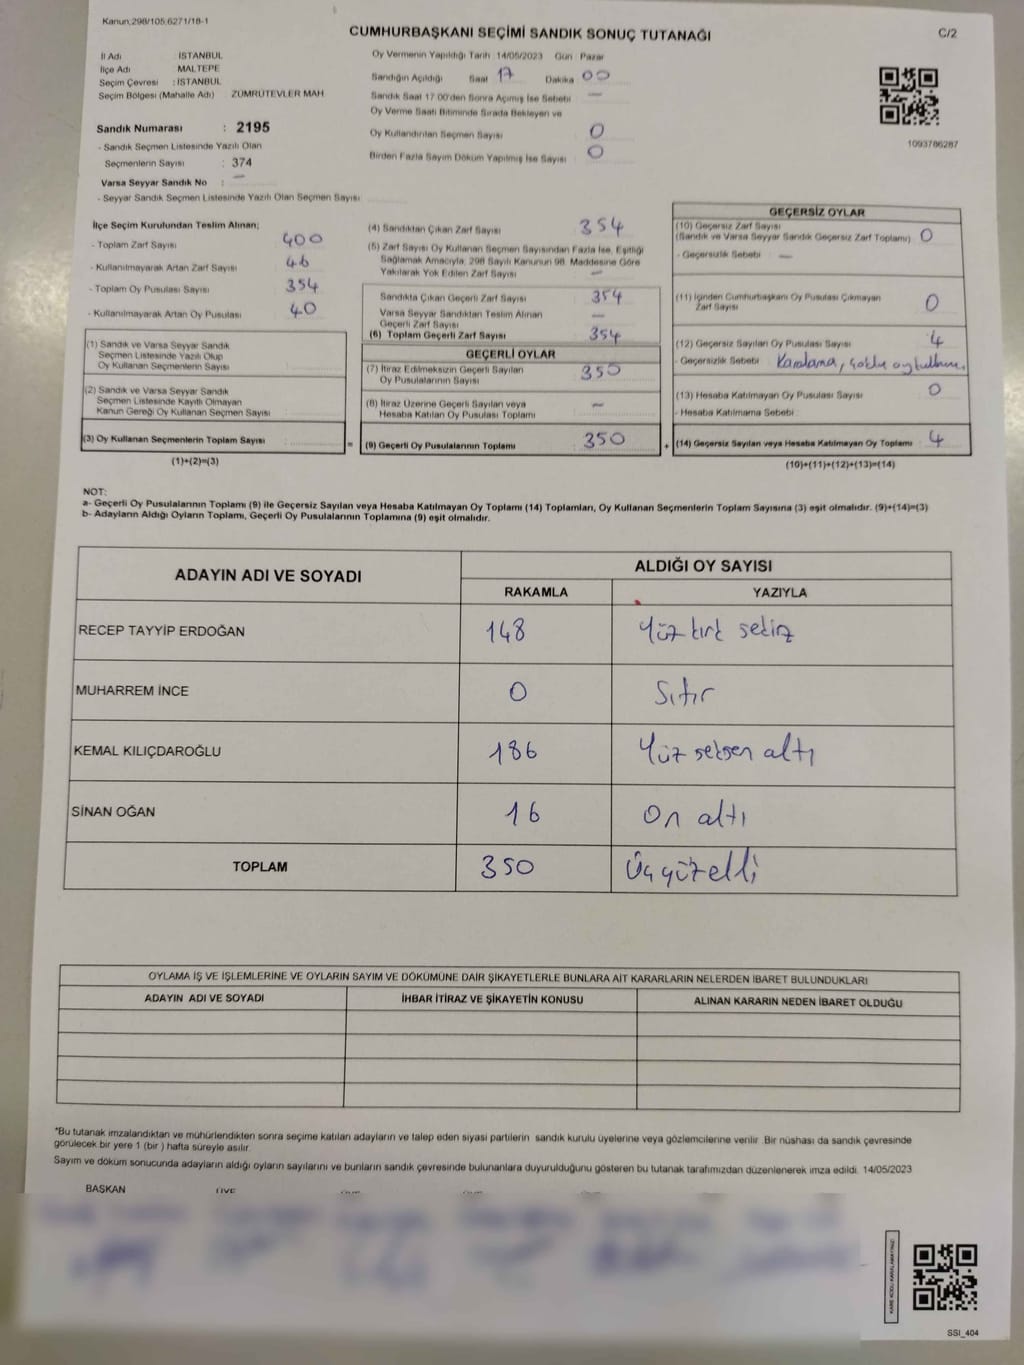 Kanun,298/105,6271/18-1
CUMHURBAŞKANI SEÇİMİ SANDIK SONUÇ TUTANAĞI
C/2
İl Adı : İSTANBUL
İlçe Adı MALTEPE
Seçim Çevresi : İSTANBUL
Seçim Bölgesi (Mahalle Adı) : ZÜMRÜTEVLER MAH
Sandık Numarası : 2195
- Sandık Seçmen Listesinde Yazılı Olan
Seçmenlerin Sayısı : 374
Varsa Seyyar Sandık No : —
- Seyyar Sandık Seçmen Listesinde Yazılı Olan Seçmen Sayısı
Oy Vermenin Yapıldığı Tarih : 14/05/2023 Gün : Pazar
Sandığın Açıldığı Saat 17 Dakika 00
Sandık Saat 17.00'den Sonra Açımış İse Sebebi —
Oy Verme Saati Bitiminde Sırada Bekleyen ve
Oy Kullandırılan Seçmen Sayısı 0
Birden Fazla Sayım Döküm Yapılmış İse Sayısı 0
1093786287
İlçe Seçim Kurulundan Teslim Alınan;
- Toplam Zarf Sayısı 400
- Kullanılmayarak Artan Zarf Sayısı 46
- Toplam Oy Pusulası Sayısı 354
- Kullanılmayarak Artan Oy Pusulası 40
(1) Sandık ve Varsa Seyyar Sandık
Seçmen Listesinde Yazılı Olup
Oy Kullanan Seçmenlerin Sayısı
(2) Sandık ve Varsa Seyyar Sandık
Seçmen Listesinde Kayıtlı Olmayan
Kanun Gereği Oy Kullanan Seçmen Sayısı
(3) Oy Kullanan Seçmenlerin Toplam Sayısı
(1)+(2)=(3)
(4) Sandıktan Çıkan Zarf Sayısı 354
(5) Zarf Sayısı Oy Kullanan Seçmen Sayısından Fazla İse, Eşitliği
Sağlamak Amacıyla, 298 Sayılı Kanunun 98. Maddesine Göre
Yakılarak Yok Edilen Zarf Sayısı —
Sandıkta Çıkan Geçerli Zarf Sayısı 354
Varsa Seyyar Sandıktan Teslim Alınan
Geçerli Zarf Sayısı —
(6) Toplam Geçerli Zarf Sayısı 354
GEÇERLİ OYLAR
(7) İtiraz Edilmeksizin Geçerli Sayılan
Oy Pusulalarının Sayısı 350
(8) İtiraz Üzerine Geçerli Sayılan veya
Hesaba Katılan Oy Pusulası Toplamı —
= (9) Geçerli Oy Pusulalarının Toplamı 350
GEÇERSİZ OYLAR
(10) Geçersiz Zarf Sayısı
(Sandık ve Varsa Seyyar Sandık Geçersiz Zarf Toplamı) 0
- Geçersizlik Sebebi : —
(11) İçinden Cumhurbaşkanı Oy Pusulası Çıkmayan
Zarf Sayısı 0
(12) Geçersiz Sayılan Oy Pusulası Sayısı 4
- Geçersizlik Sebebi Karalama,
(13) Hesaba Katılmayan Oy Pusulası Sayısı 0
- Hesaba Katılmama Sebebi :
+ (14) Geçersiz Sayılan veya Hesaba Katılmayan Oy Toplamı 4
(10)+(11)+(12)+(13)=(14)
NOT:
a- Geçerli Oy Pusulalarının Toplamı (9) ile Geçersiz Sayılan veya Hesaba Katılmayan Oy Toplamı (14) Toplamları, Oy Kullanan Seçmenlerin Toplam Sayısına (3) eşit olmalıdır. (9)+(14)=(3)
b- Adayların Aldığı Oyların Toplamı, Geçerli Oy Pusulalarının Toplamına (9) eşit olmalıdır.
ADAYIN ADI VE SOYADI
ALDIĞI OY SAYISI
RAKAMLA YAZIYLA
RECEP TAYYİP ERDOĞAN 148 Yüz kırk sekiz
MUHARREM İNCE 0 Sıfır
KEMAL KILIÇDAROĞLU 186 Yüz seksen altı
SİNAN OĞAN 16 On altı
TOPLAM 350 Üçyüzelli
OYLAMA İŞ VE İŞLEMLERİNE VE OYLARIN SAYIM VE DÖKÜMÜNE DAİR ŞİKAYETLERLE BUNLARA AİT KARARLARIN NELERDEN İBARET BULUNDUKLARI
ADAYIN ADI VE SOYADI İHBAR İTİRAZ VE ŞİKAYETİN KONUSU ALINAN KARARIN NEDEN İBARET OLDUĞU
*Bu tutanak imzalandıktan ve mühürlendikten sonra seçime katılan adayların ve talep eden siyasi partilerin sandık kurulu üyelerine veya gözlemcilerine verilir. Bir nüshası da sandık çevresinde
görülecek bir yere 1 (bir ) hafta süreyle asılır.
Sayım ve döküm sonucunda adayların aldığı oyların sayılarını ve bunların sandık çevresinde bulunanlara duyurulduğunu gösteren bu tutanak tarafımızdan düzenlenerek imza edildi. 14/05/2023
BAŞKAN
KARE KODU KARALAMAYINIZ!
SSI_404